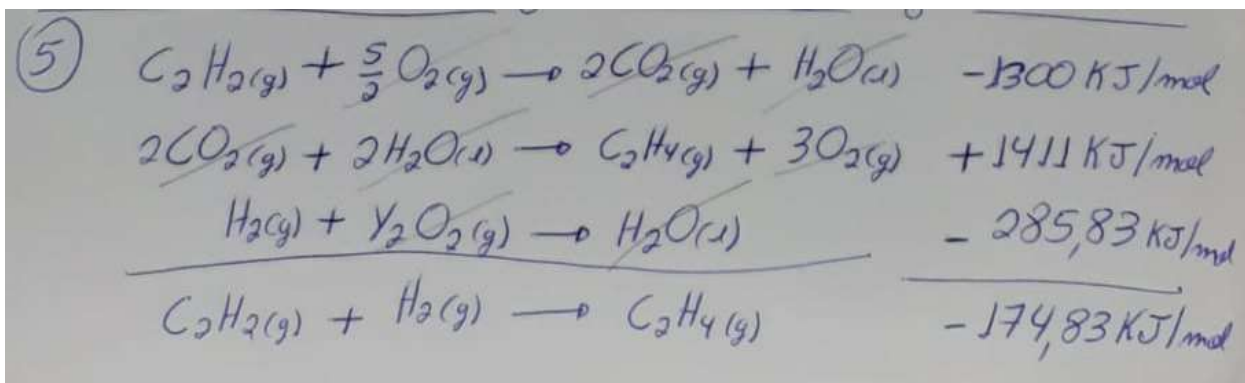 ⑤ C₂H₂(g) + 5/2 O₂(g) → 2CO₂(g) + H₂O(l) -1300 KJ/mol
2CO₂(g) + 2H₂O(l) → C₂H₄(g) + 3O₂(g) +1411 KJ/mol
H₂(g) + 1/2 O₂(g) → H₂O(l) - 285,83 KJ/mol
C₂H₂(g) + H₂(g) → C₂H₄(g) -174,83 KJ/mol